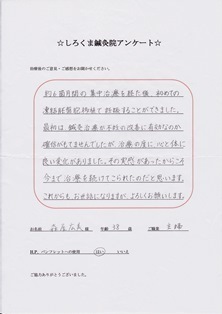 ☆しろくま鍼灸院アンケート☆
治療後のご意見・ご感想をお聞かせください。
約6箇月間の集中治療を経た後、初めての
凍結胚盤胞移植で妊娠することができました。
最初は、鍼灸治療が不妊の改善に有効なのか
確信がもてませんでしたが、治療の度に、心と体に
良い変化がありました。その実感があったからこそ
今まで治療を続けてこられたのだと思います。
これからも、お世話になりますが、よろしくお願いします。
お名前 様 年齢 38 歳 ご職業 主婦
H.P、パンフレットへの使用 はい いいえ
ご協力ありがとうございました。